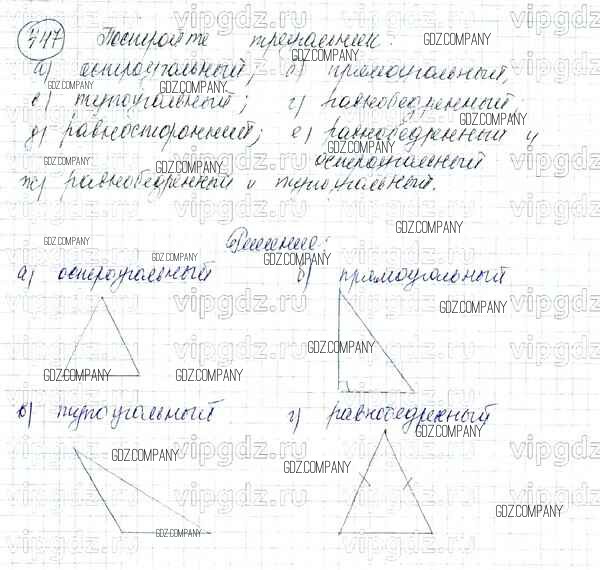 747 Постройте треугольник:
а) остроугольный; б) прямоугольный;
в) тупоугольный; г) равнобедренный;
д) равносторонний; е) равнобедренный и
остроугольный
ж) равнобедренный и тупоугольный.
Решение:
а) остроугольный б) прямоугольный
в) тупоугольный г) равнобедренный
GDZ.COMPANY
vipgdz.ru